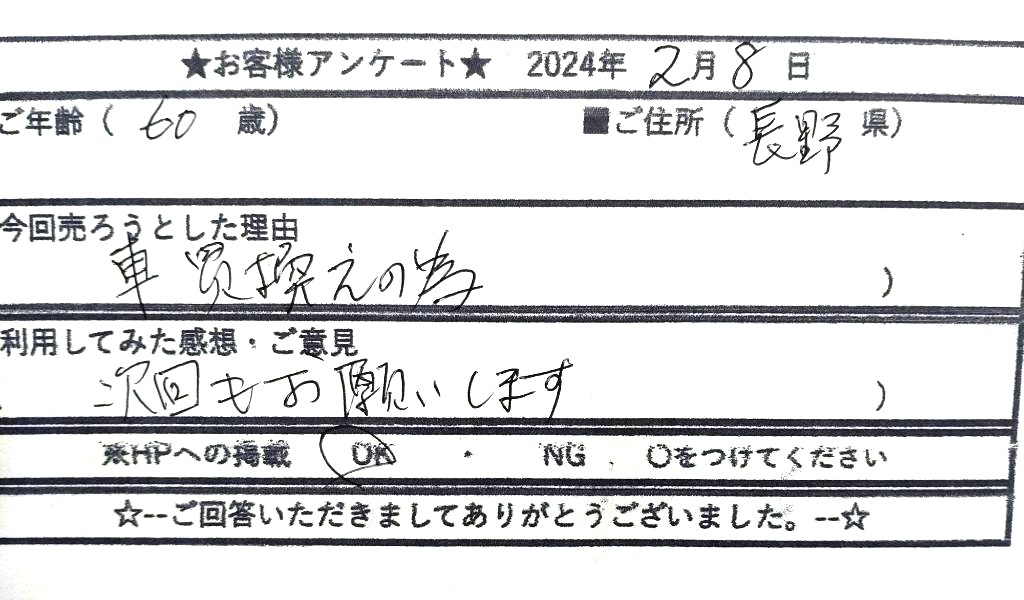 ★お客様アンケート★ 2024年 2月 8 日
ご年齢（ 60 歳） ■ご住所（長野 県）
今回売ろうとした理由
車買換えの為 ）
利用してみた感想・ご意見
次回もお願いします ）
※HPへの掲載 OK ・ NG 〇をつけてください
☆--ご回答いただきましてありがとうございました。--☆